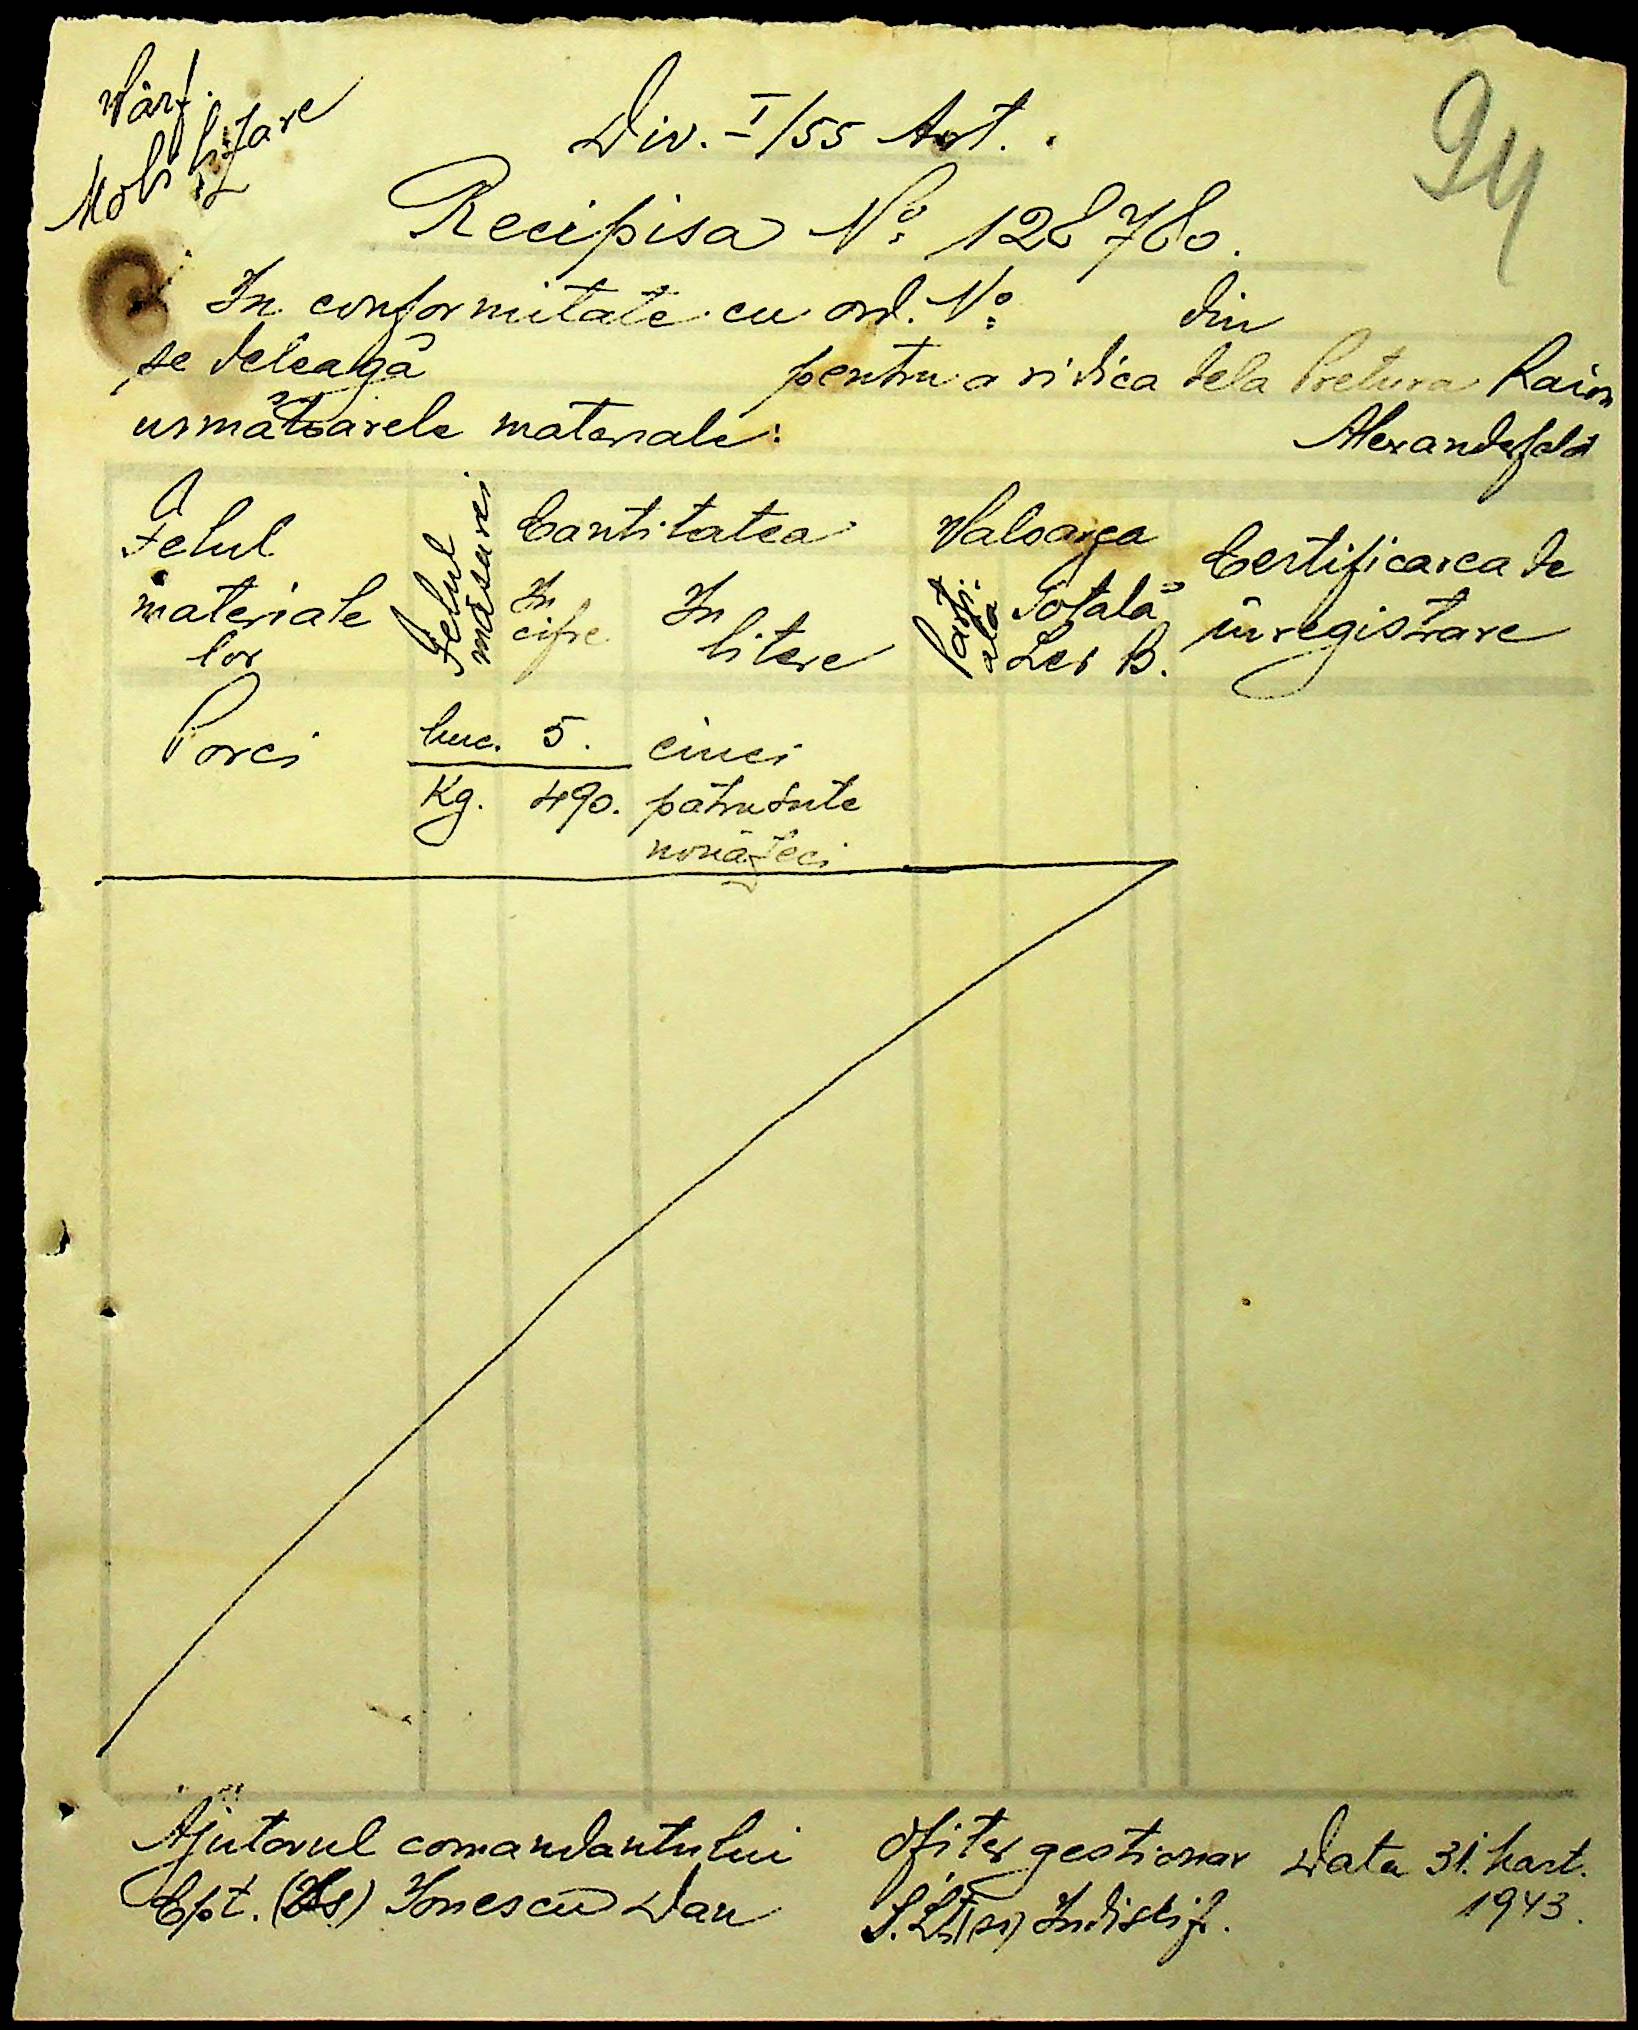 Vârf.
Mobilizare
94
Div. I/55 Art.
Recipisa No. 128780.
In conformitate cu ord. No. din
se deleagă pentru a ridica dela Pretura Raion
următoarele materiale: Alexanderfeld
Felul materialelor
Felul măsurei
Cantitatea
In cifre
In litere
Valoarea
Parțială
Totală
Lei B.
Certificarea de
înregistrare
Porci buc. 5. cinci
Kg. 490. pătrusute
nouăzeci
Ajutorul comandantului Ofiter gestionar Data 31. Mart.
Cpt. (ss) Ionescu Dan S.Lt. (ss) Indiscif. 1943.